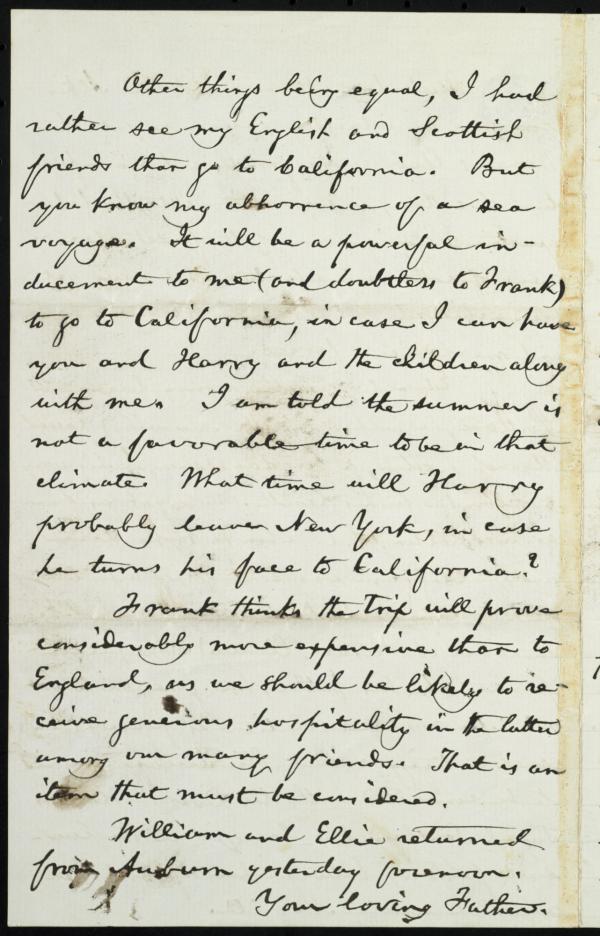 Other things being equal, I had
rather see my English and Scottish
friends than go to California. But
you know my abhorrence of a sea
voyage. It will be a powerful in-
ducement to me (and doubtless to Frank)
to go to California, in case I can have
you and Harry and the children along
with me. I am told the summer is
not a favorable time to be in that
climate. What time will Harry
probably leave New York, in case
he turns his face to California?
Frank thinks the trip will prove
considerably more expensive than to
England, as we should be likely to re-
ceive generous hospitality in the latter
among our many friends. That is an
item that must be considered.
William and Ellie returned
from Auburn yesterday forenoon.
Your loving Father.